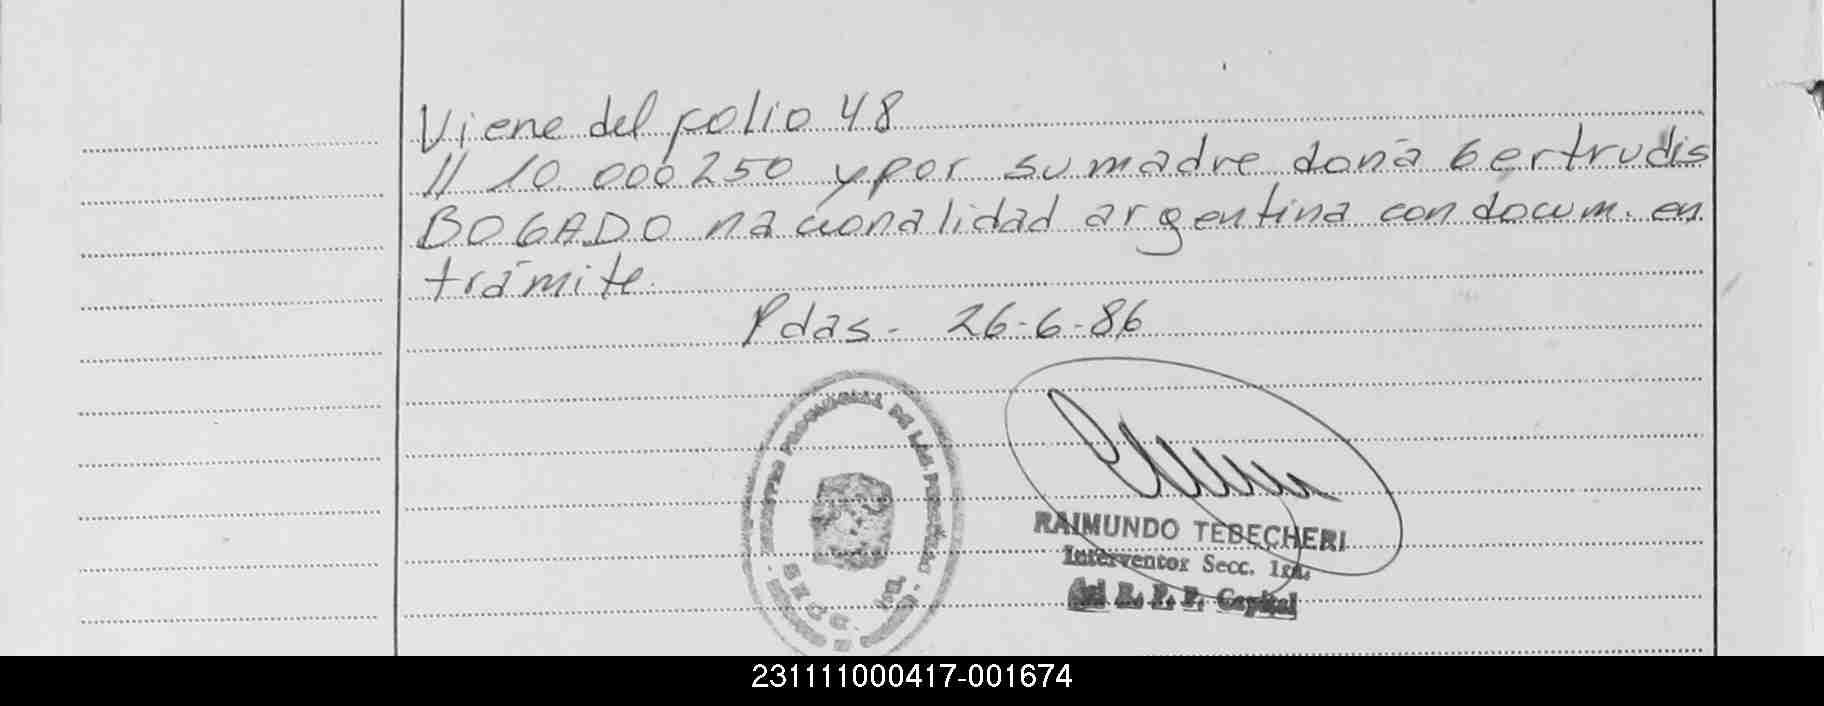 Viene del folio 48
// 10.000250 y por su madre doña Gertrudis
BOGADO nacionalidad argentina con docum. en
trámite.
Pdas.- 26-6-86
PROVINCIAL DE LAS PERSONAS
SECC.
RAIMUNDO TEBECHERI
Interventor Secc. 1ra.
del R. P. P. Capital
231111000417-001674